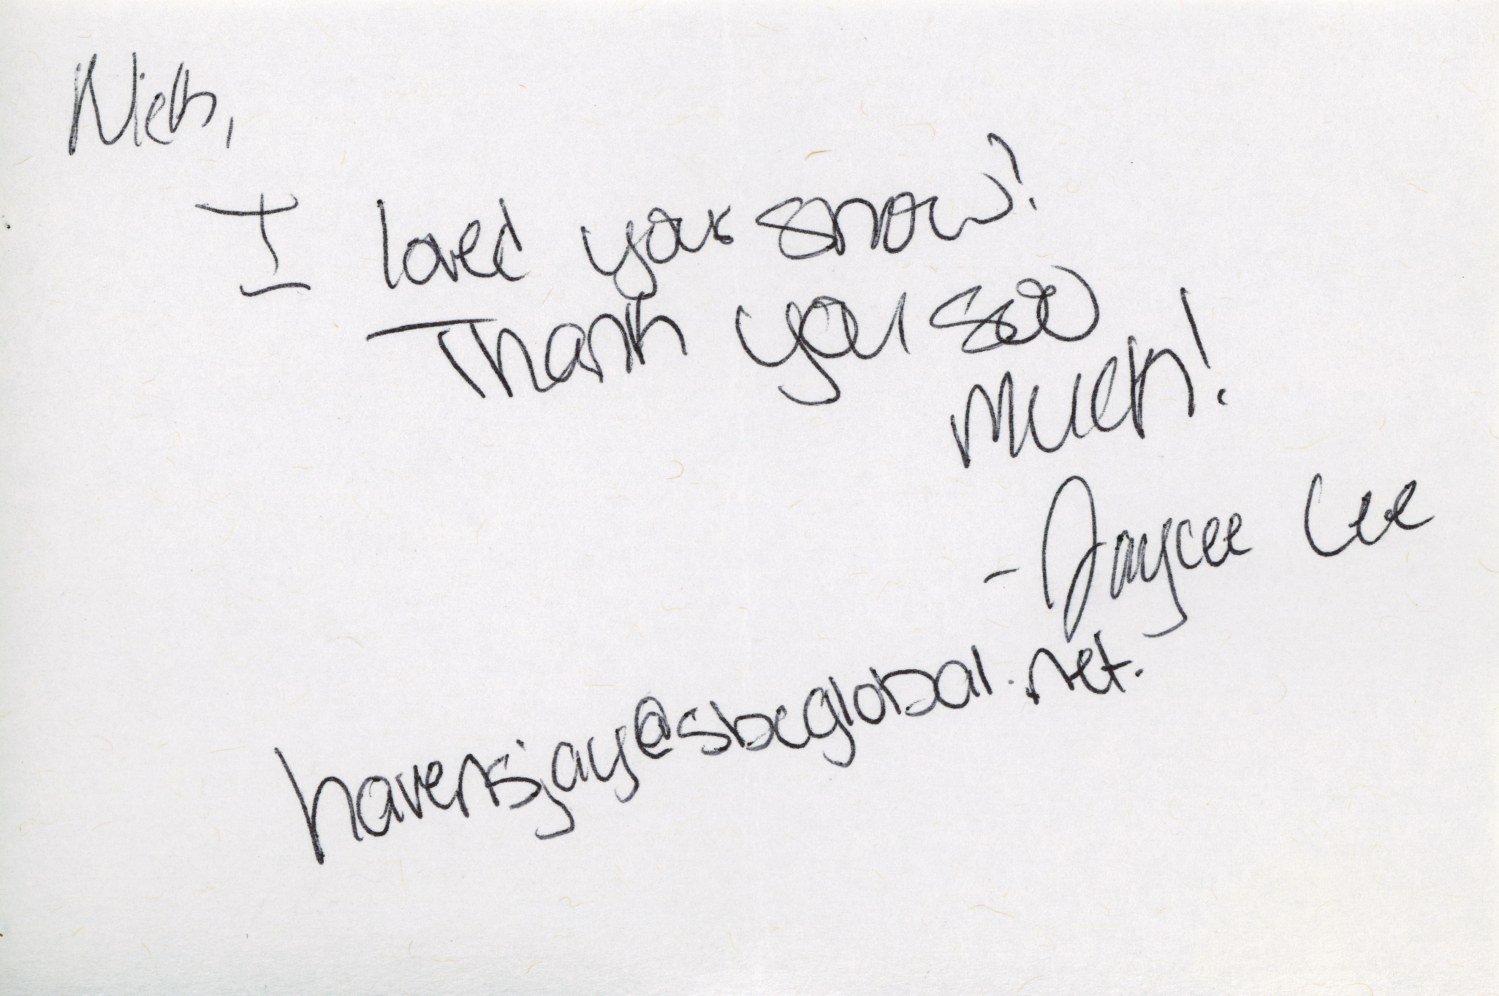 Nick,
I loved your show!
Thank you soo
much!
- Jaycee Lee
havensjay@sbcglobal.net.